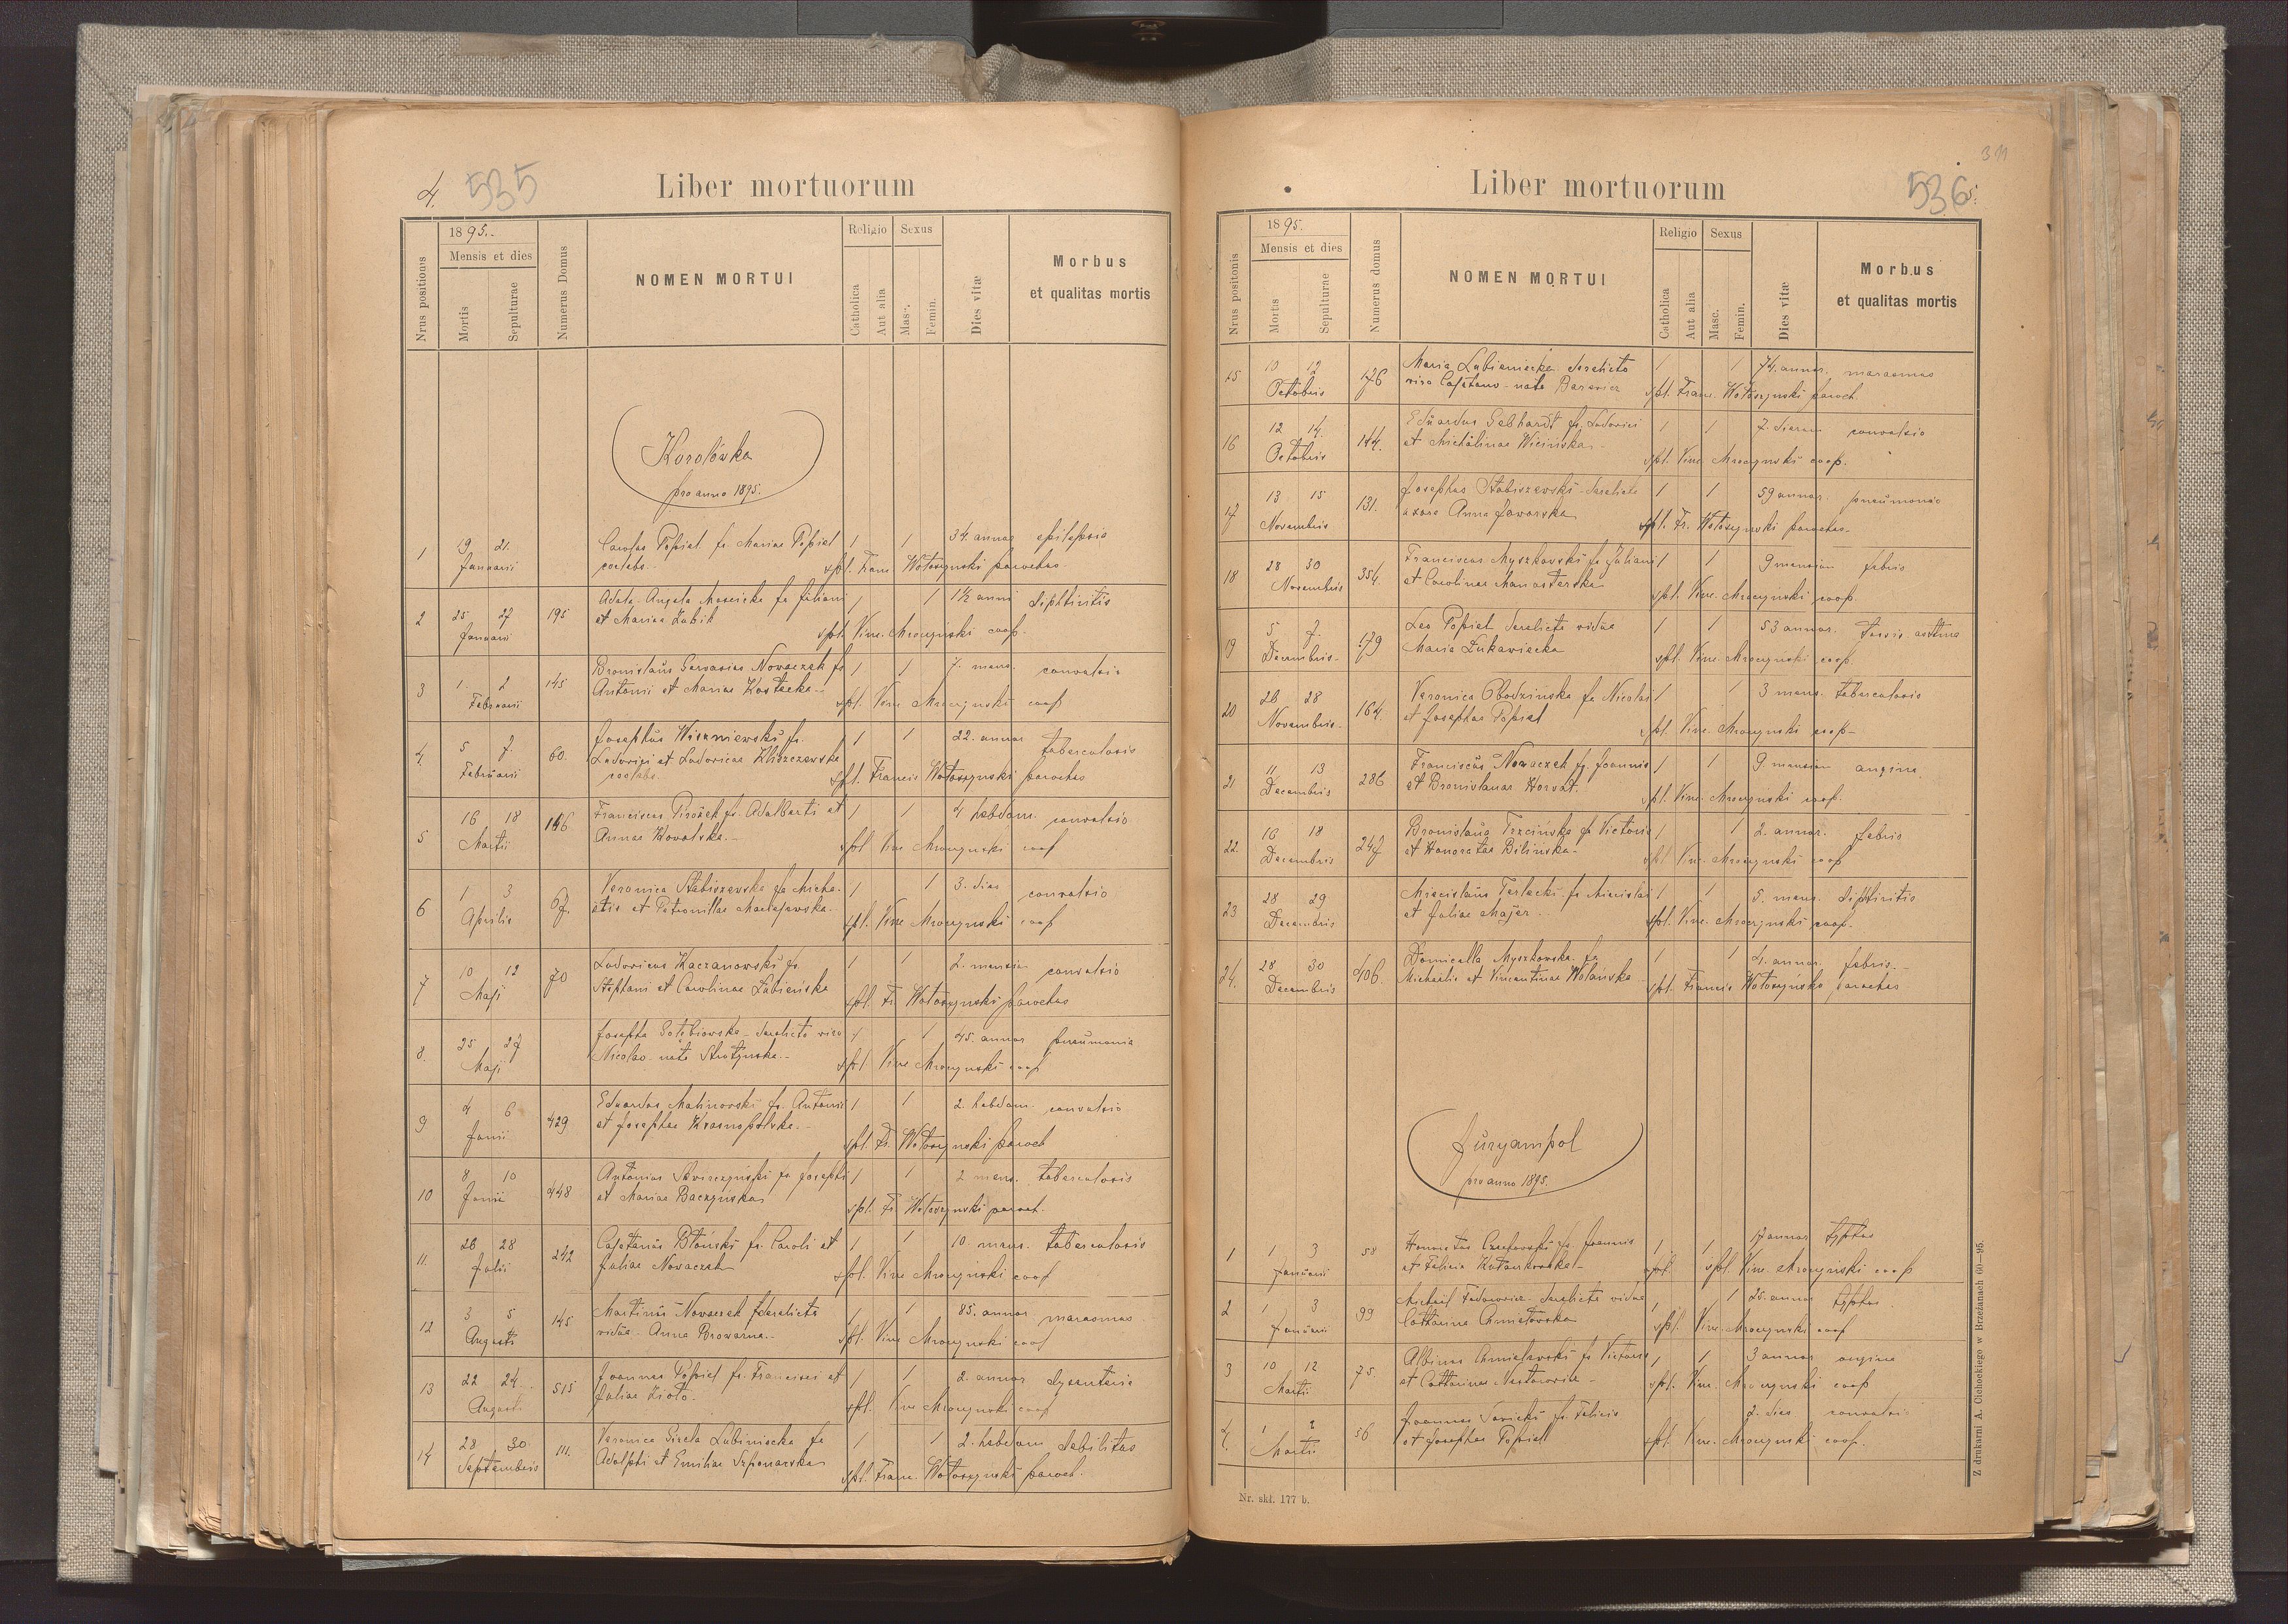 4. 535
Liber mortuorum
Nrus positionis
1895.
Mensis et dies
Mortis
Sepulturae
Numerus Domus
NOMEN MORTUI
Religio
Catholica
Aut alia
Sexus
Masc.
Femin.
Dies vitæ
Morbus
et qualitas mortis
Korolówka
pro anno 1895.
1 19 21. Januarii Carolus Popiel fs. Mariae Popiel 1 1 34. annor epilepsia
coelebs. spl. Franc Wołoszynski parochus
2 25 27 Januarii 195 Adela Angela Mościcka fa Juliani 1 1 1½ anni diphtiritis
et Mariae Zubik spl. Vinc. Mroczyński coop.
3 1. 2 Februarii 145 Bronislaus Gervasius Nowaczek fs 1 1 7. mens. convulsio
Antonii et Mariae Kostecka spl. Vinc Mroczynski coop
4. 5 7. Februarii 60. Josephus Wiszniewski fs. 1 1 22. annor tuberculosis
Ludovici et Ludovicae
coelebs spl. Francis Wołoszynski parochus
5 16 18 Martii 146 Franciscus fs. Adalberti et 1 1 4 hebdom. convulsio
Annae Kowalska. spl Vinc Mroczynski coop
6 1 3 Aprilis 67. Veronica Stabiszewska fa Micha- 1 1 3. dies convulsio
elis et Petronillae Maciejowska. spl. Vinc Mroczynski coop
7 10 12 Maji 70 Ludovicus Kaczanowski fs. 1 1 2. mensium convulsio
Stephani et Carolinae Łubieńska spl. Fr Wołoszynski parochus
8. 25 27 Maji Josepha Gołębiowska derelicto viro 1 1 45. annor pneumonia
Nicolao nata Strutynska. spl. Vinc Mroczynski coop
9 4 6 Junii 429 Eduardus Malinowski fs. Antonii 1 1 2. hebdom. convulsio
et Josephae Krasnopolska. spl. Fr. Wołoszynski paroch
10 8 10 Junii 448 Antonius Skwirczynski fs Josephi 1 1 2 mens. tuberculosis
et Mariae Baczynska spl. Fr Wołoszynski paroch.
11. 26 28 Julii 242 Cajetanus Błoński fs. Caroli et 1 1 10. mens. tuberculosis
Juliae Nowaczek spl. Vinc Mroczyński coop
12 3 5 Augusti 145 Martinus Nowaczek derelicta 1 1 85. annor marasmus
vidua Anna Browarna. spl. Vinc Mroczynski coop
13 22 24. Augusti 515 Joannes Popiel fs. Francisci et 1 1 2. annor dysenteria
Juliae spl. Vinc Mroczynski coop
14 28 30. Septembris 111. Veronica Gizela Lubiniecka fa 1 1 2. hebdom debilitas
Adolphi et Emiliae Szponarska spl. Franc. Wołoszynski paroch.
311
Liber mortuorum
536 5.
Nrus positonis
1895.
Mensis et dies
Mortis
Sepulturae
Numerus domus
NOMEN MORTUI
Religio
Catholica
Aut alia
Sexus
Masc.
Femin.
Dies vitæ
Morbus
et qualitas mortis
15 10 12 Octobris 176 Maria Lubieniecka derelicto 1 1 74. annor. marasmus
viro Cajetano nata Barewicz spl. Franc. Wołoszynski paroch.
16 12 14. Octobris 144. Eduardus Gebhardt fs. Ludovici 1 1 7. dierum convulsio
et Michalinae Wicińska spl. Vinc Mroczynski coop.
17 13 15 Novembris 131. Josephus Stabiszewski derelicta 1 1 59 annor. pneumonia
uxore Anna Jaworska spl. Fr. Wołoszynski parochus
18 28 30 Novembris 354. Franciscus Myszkowski fs Juliani 1 1 9 mensium febris
et Carolinae Manasterska spl. Vinc. Mroczynski coop.
19 5 7. Decembris 179 Leo Popiel derelicta vidua 1 1 53 annor. tussis asthma
Maria Łukawiecka spl. Vinc Mroczynski coop
20 26 28 Novembris 164. Veronica Obodzińska fa Nicolai 1 1 3 mens. tuberculosis
et Josephae Popiel spl. Vinc. Mroczynski coop
21 11 13 Decembris 286 Franciscus Nowaczek fs. Joannis 1 1 9 mensium angina
et Bronislavae Horvat. spl. Vinc. Mroczynski coop.
22. 16 18 Decembris 247 Bronislava Trzcińska fa Victoris 1 1 2. annor. febris
et Honoratae Bilinska spl. Vinc. Mroczynski coop
23 28 29 Decembris Miecislaus Terlecki fs Miecislai 1 1 5. mens. diphtiritis
et Juliae Majer spl. Vinc. Mroczynski coop.
24. 28 30 Decembris 406. Domicella Myszkowska fa 1 1 4. annor. febris.
Michaelis et Vincentinae Wolańska spl. Francis Wołoszyński parochus
Juryampol
pro anno 1895.
1 1 3 Januarii 58 Honoratus fs. Joannis 1 1 17 annor typhus
et Felicia spl. spl. Vinc. Mroczynski coop
2 1 3 Januarii 99 Michael Fedorowicz derelicta vidua 1 1 25. annor typhus.
Catharina Chmielowska spl. Vinc. Mroczynski coop
3 10 12 Martii 75 Albinus Chmielewski fs Victoris 1 1 3 annor angina
et Catharinae Nestorowicz spl. Vinc. Mroczynski coop
4. 1 2 Martii 56 Joannes Sawicki fs. Felicis 2. dies convulsio
et Josephae Popiel spl. Vinc. Mroczynski coop.
Nr. skł. 177 b.
Z drukarni A. Cichockiego w Brzeżanach 60—95.